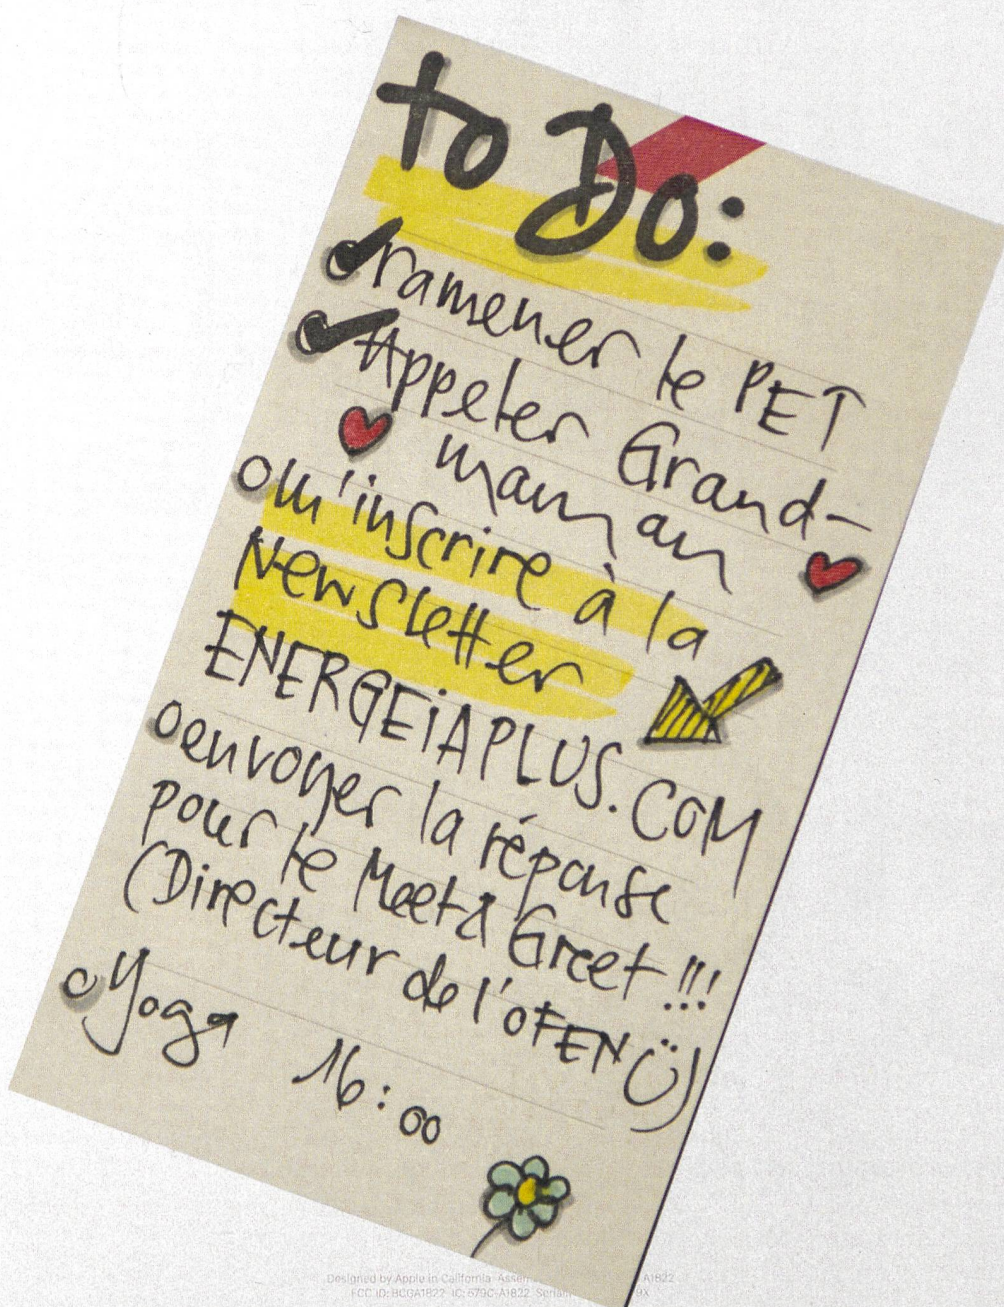 to Do:
ramener le PET
Appeler Grand-
maman
m'inscrire à la
Newsletter
ENERGEiAPLUS.COM
envoyer la réponse
pour le Meet & Greet!!!
(Directeur de l'OFEN Ü)
Yoga 16:00
Designed by Apple in California Assem A1822
FCC ID: BCGA1822 IC: 579C-A1822 Serial 9X